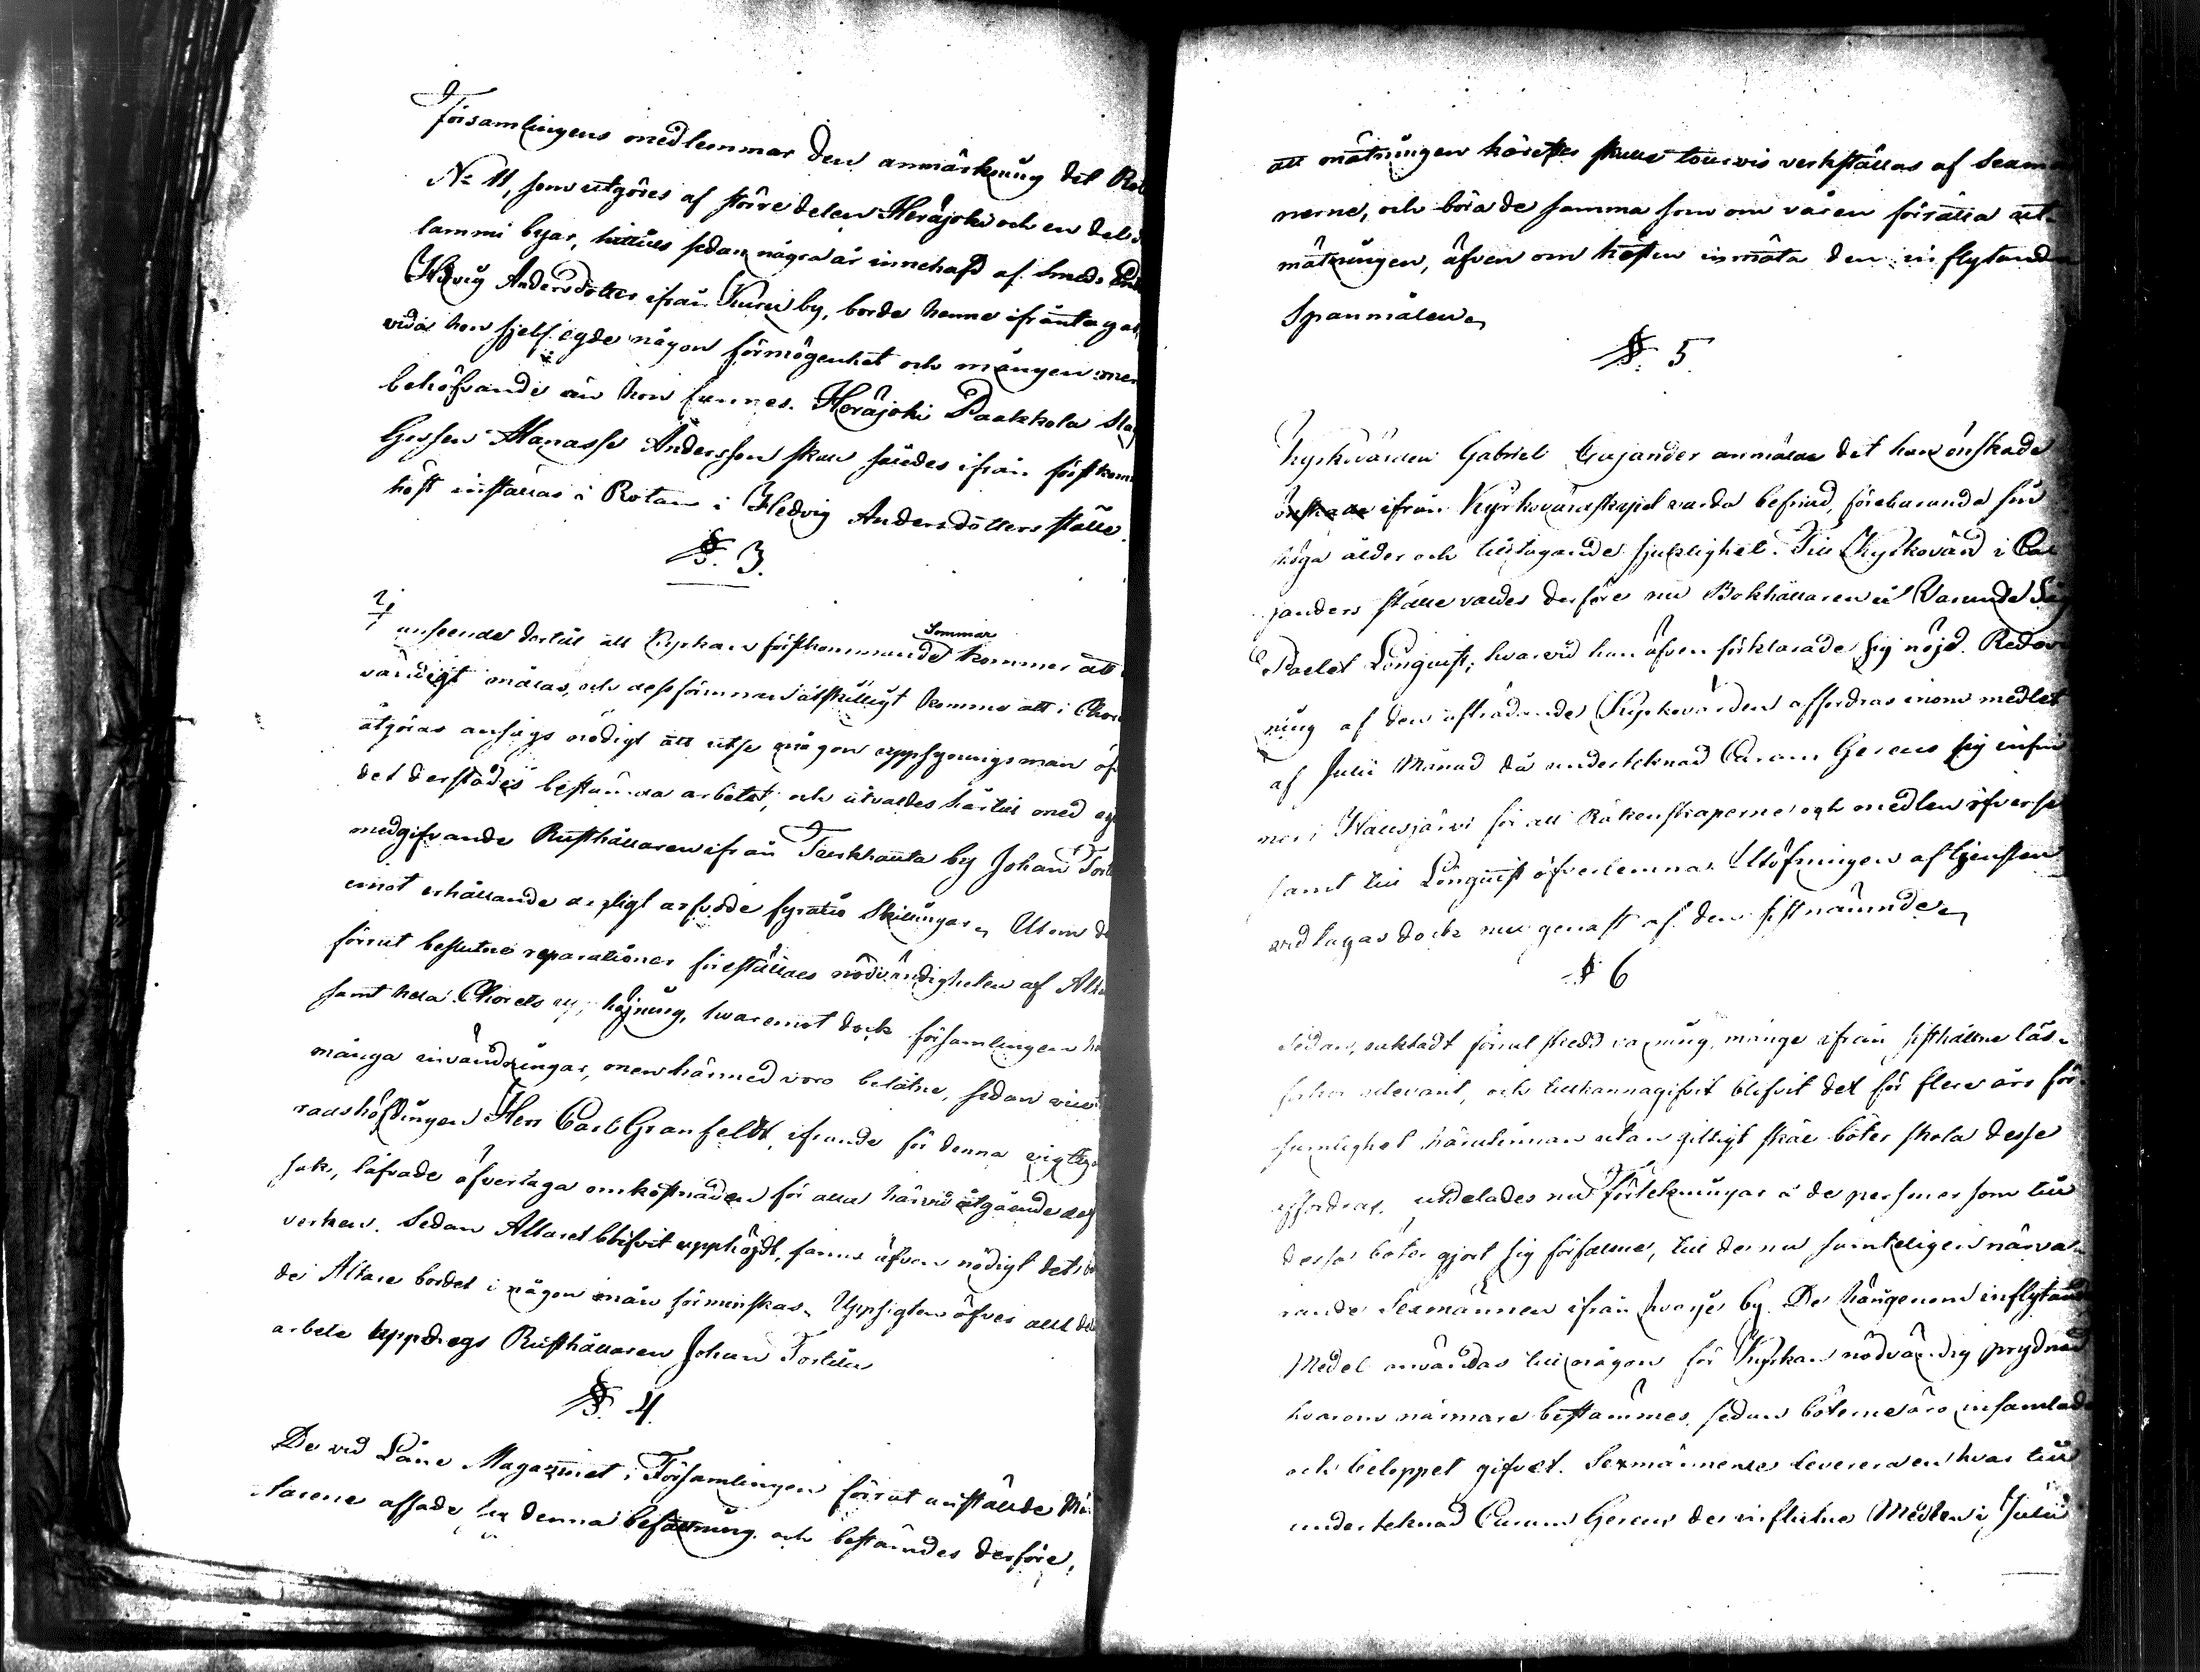 Församlingens medlemmar den anmärkning det Rot
No 11, som utgöres af större delen Heräjoki och en del
lammi byar, hittills sedan några år innehafd af Smeds Enk
Hedvig Andersdotter ifrån Kurvi by, borde henne ifråntagas
vida hon sjelf egde någon förmögenhet och mången mer
behöfvande än hon funnes. Heräjoki Paakkola
Gossen Manasse Andersson skulle således ifrån förstkom
höst inställas i Rotan i Hedvig Andersdotters ställe.
§. 3.
I anseende dertill att Kyrkan förstkommande Sommar kommer att
vändigt målas, och dessförinnan åtskilligt komme att i Chor
åtgöras ansågs nödigt att utse någon uppsyningsman öf
det derstädes bestämda arbetet; och utvaldes härtill med eg
medgifvande Rusthållaren ifrån Turkhauta by Johan Tort
emot erhållande dagligt arfvode fyratio Skillingar. Utom de
förrut beslutne reparationer föreställdes nödvändigheten af Alta
samt hela Chorets upphöjning, hvaremot dock församlingen ha
många invändningar, men härmed voro belåtne, sedan vice
radshöfdingen Herr Carl Granfeldt, ifrande för denna vigtiga
sak, låfvade öfvertaga omkostnaden för alla härvid åtgående dag
verken. Sedan Altaret blifvit upphöjdt, fanns äfven nödigt det
de Altare bordet i någon mån förminskas. Uppsigten öfver allt det
arbete uppdrogs Rusthållaren Johan Tortila
§. 4.
De vid Låne Magazinet i Församlingen förrut anstälde Mä
tarene afsade sig denna befattning och bestämdes derföre,
att mätningen härefter skulle tourvis verkställas af Sexmän
nerne, och böra de samma som om våren förrätta ut-
mätningen, äfven om hösten inmäta den inflytande
Spannmålen.
§. 5.
Kyrkvärden Gabriel Cajander anmälde det han önskade
ifrån Kyrkovärdskapet varda befriad, förebärande sin
höga ålder och tilltagande sjuklighet. Till Kyrkovärd i Ca
janders ställe valdes derföre nu Bokhållaren å
Pavlot Lönquist; hvarvid han äfven förklarade sig nöjd. Redov
ning af den afträdande Kyrkovärden affordras inom medlet
af Julii Månad då undertecknad Curam Gerens sig infin
ner i Hausjärvi för att Räkenskaperne och medlen öfverse
samt till Lönquist öfverlemna. Utöfningen af tjensten
vidtages dock nu genast af den sistnämnde.
§ 6
Sedan, oaktadt förrut skedd varning, månge ifrån sisthållne läs-
förhör uteväntat, och tillkännagifvit blifvit det för flere års för
sumlighet härutinnan utan giltigt skäl böter skola desse
affordras, utdelades nu förtekningar å de personer som till
dessa böter gjort sig förfallne, till de nu samteligen närva-
rande Sexmännen ifrån hvarje by. De härigenom inflytande
Medel användas till någon för Kyrkan nödvändig prydnad
hvarom närmare bestämmes, sedan böterne äro insamlade
och beloppet gifvet. Sexmännerne leverera en hvar till
undertecknad Curam Gerens de influtne Medlen i Julii